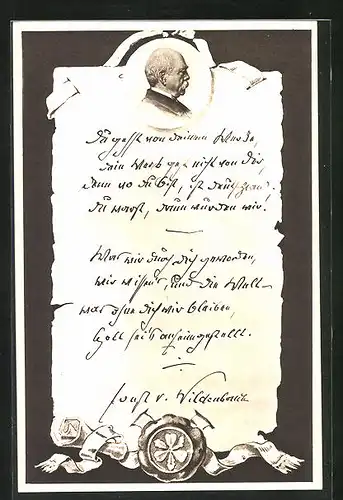 Du gehst von deinem Werke,
dein Werk geht nicht von dir,
denn wo du bist, ist Deutschland.
Du warst, drum wurden wir!
Was wir durch dich geworden,
wir wissen's und die Welt –
was ohne dich wir bleiben,
Gott sei's anheimgestellt.
Ernst v. Wildenbruch